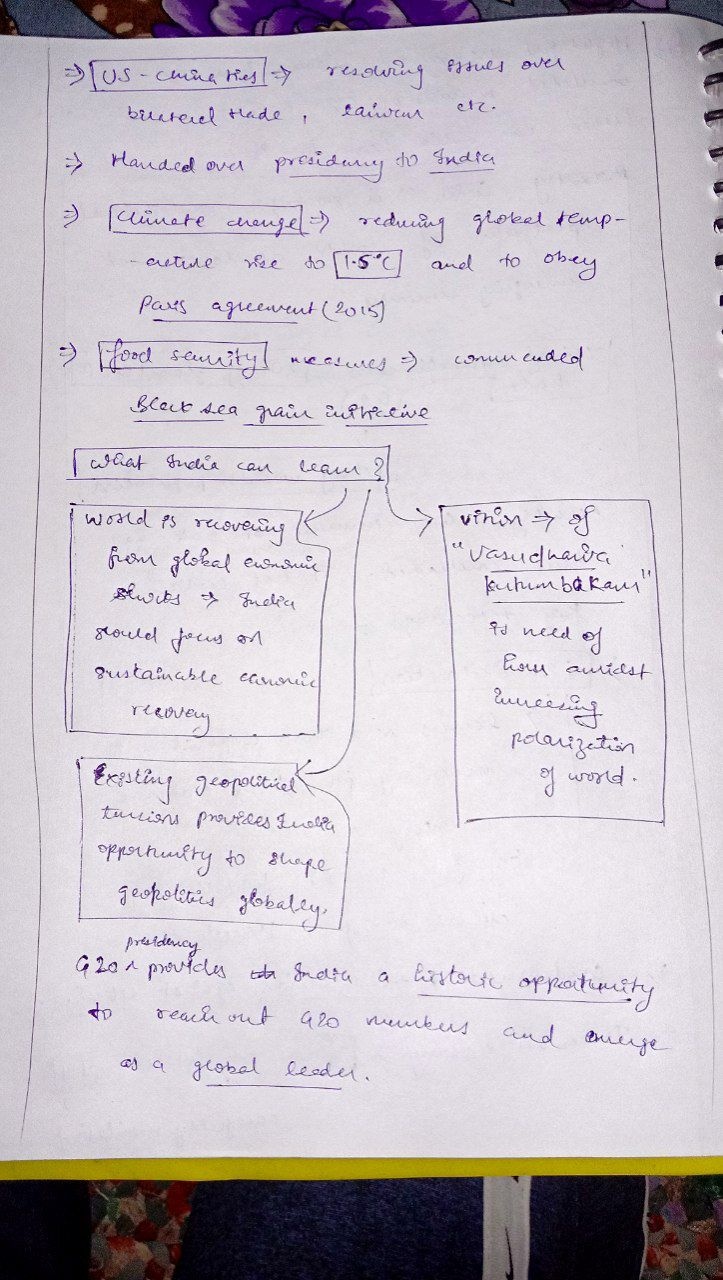 ⇒ US-China ties ⇒ resolving issues over
bilateral trade, taiwan etc.
⇒ Handed over presidency to India
⇒ Climate change ⇒ reducing global temp-
-erature rise to 1.5°C and to obey
Paris agreement (2015)
⇒ food security measures ⇒ commended
Black sea grain initiative
What India can learn?
World is recovering
from global economic
shocks ⇒ India
should focus on
sustainable economic
recovery
vision ⇒ of
"Vasudhaiva
kutumbakam"
is need of
hour amidst
increasing
polarization
of world.
Existing geopolitical
tensions provides India
opportunity to shape
geopolitics globally.
presidency
G20 ^ provides India a historic opportunity
to reach out G20 members and emerge
as a global leader.